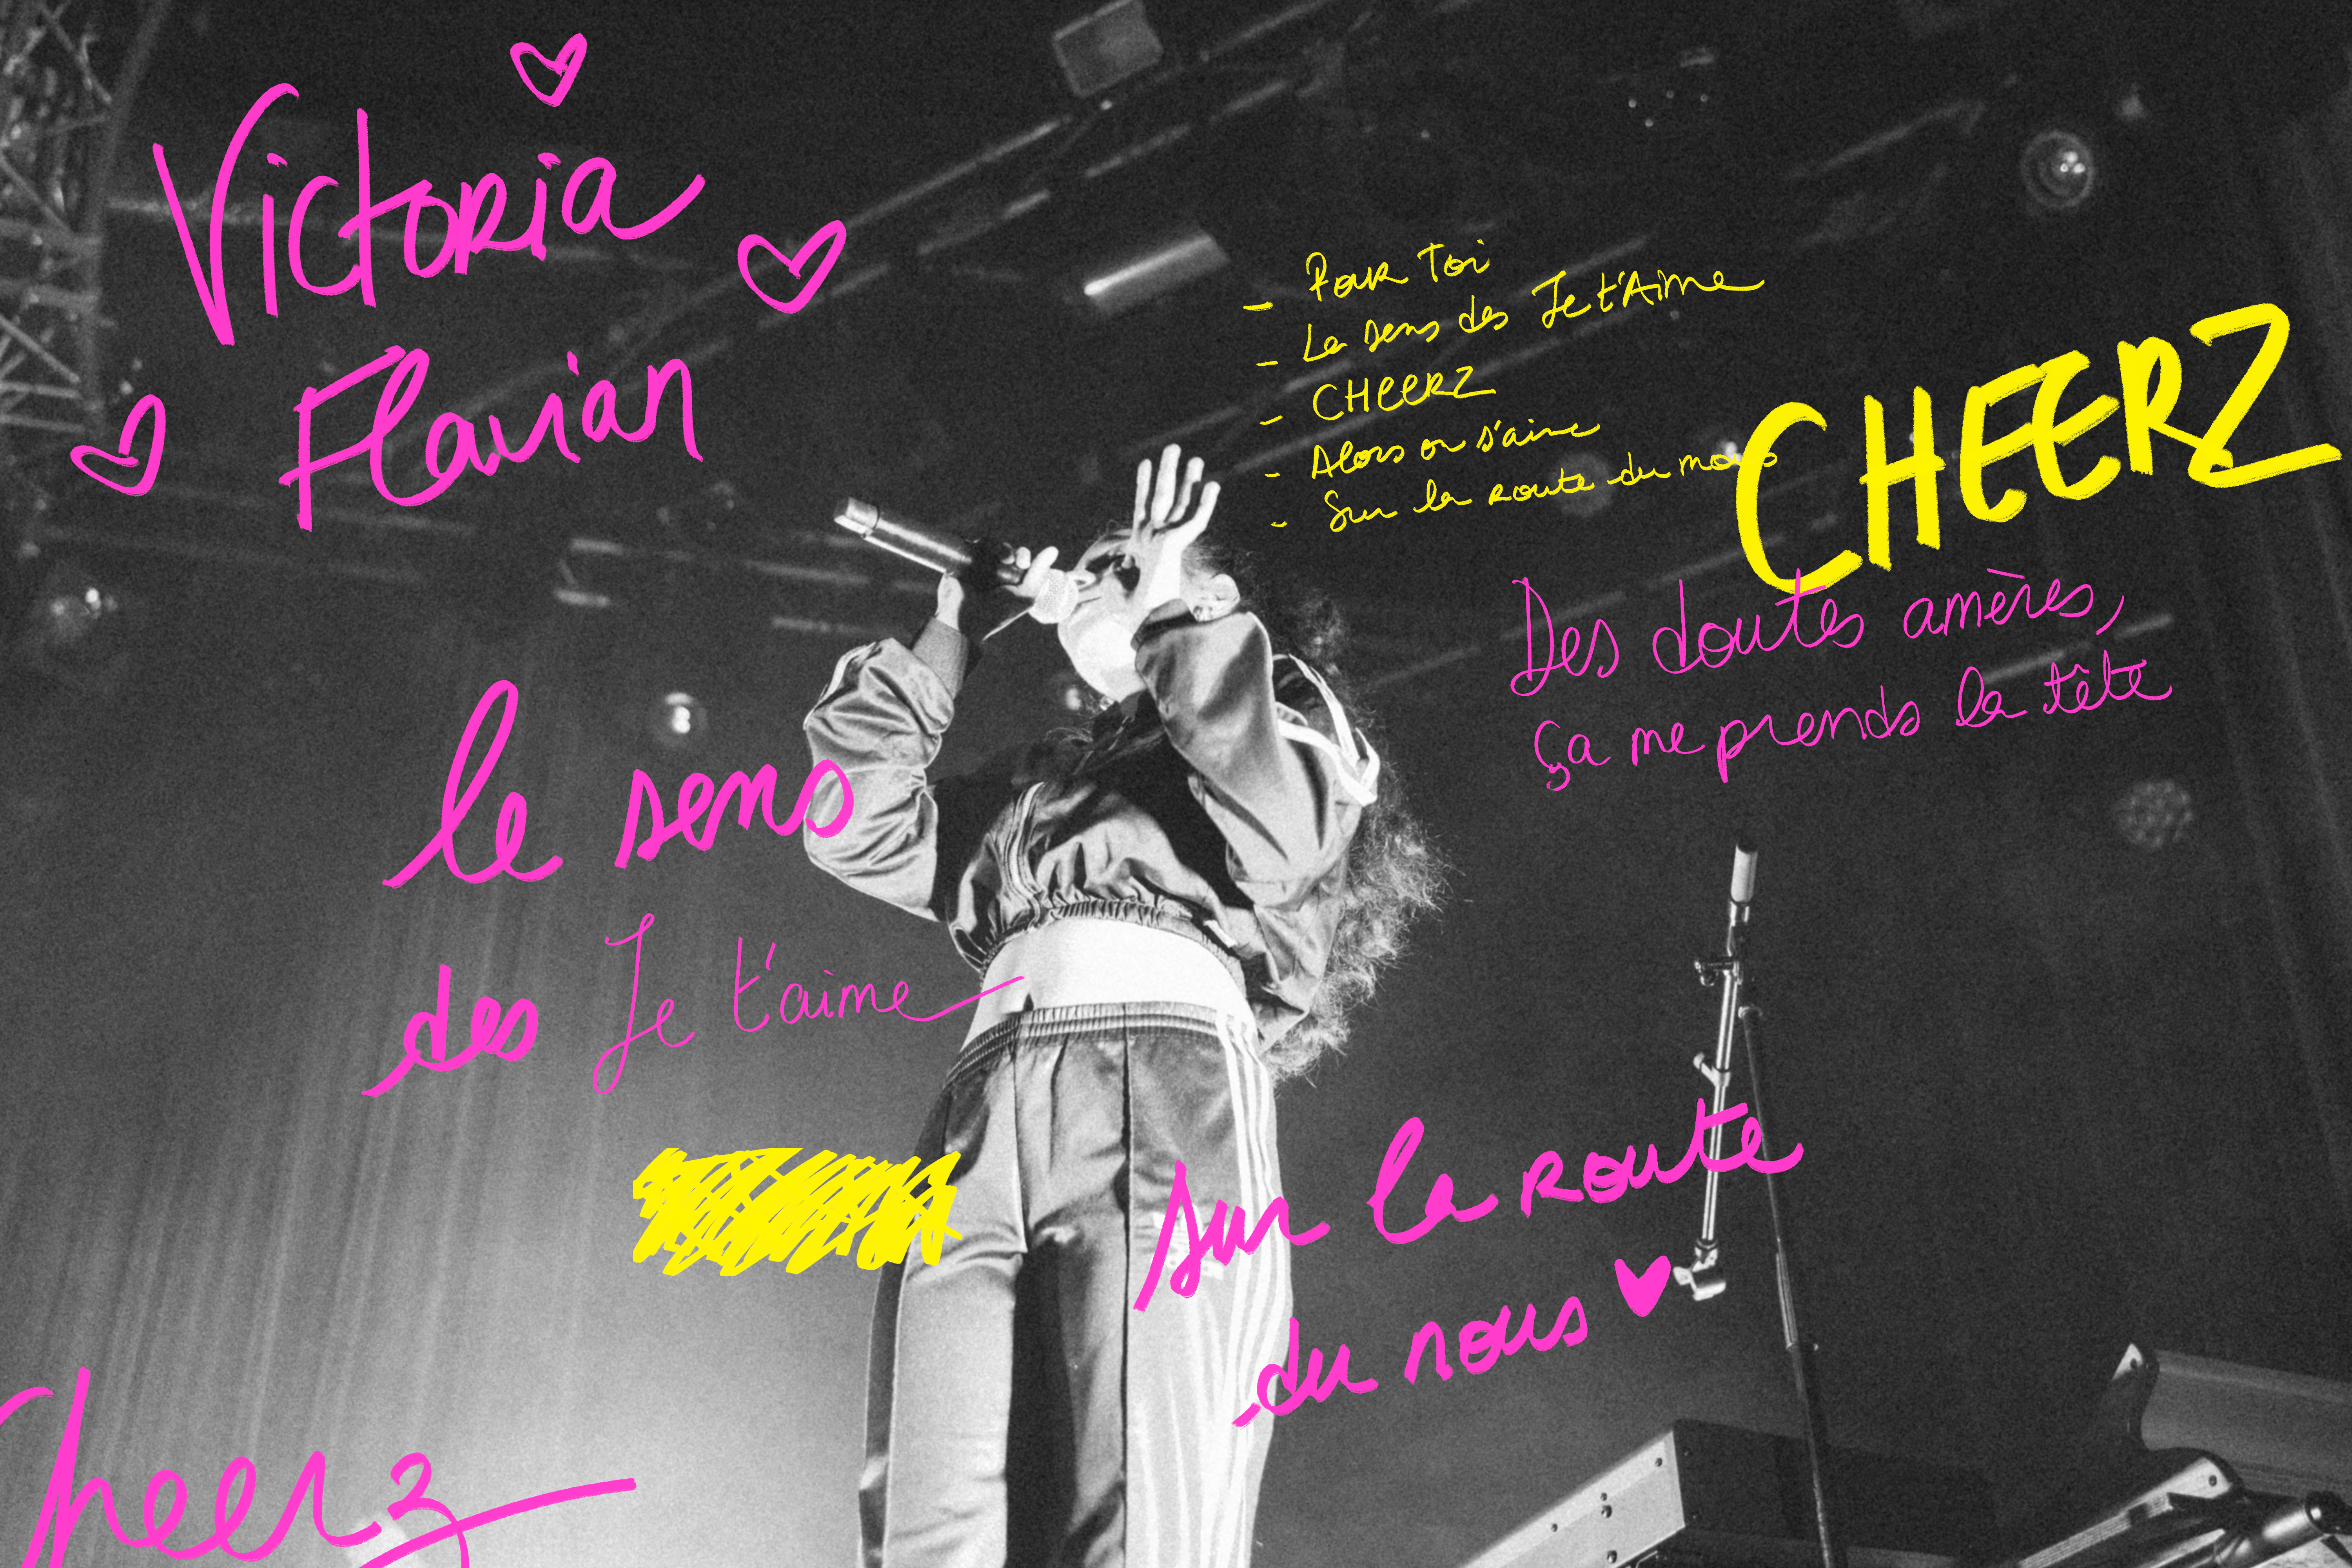 Victoria
Flavian
- Pour Toi
- Le sens des Je t'Aime
- CHEERZ
- Alors on s'aime
- Sur la route du nous
CHEERZ
Des doutes amères,
ça me prends la tête
le sens
des Je t'aime
sur la route
du nous
Cheerz